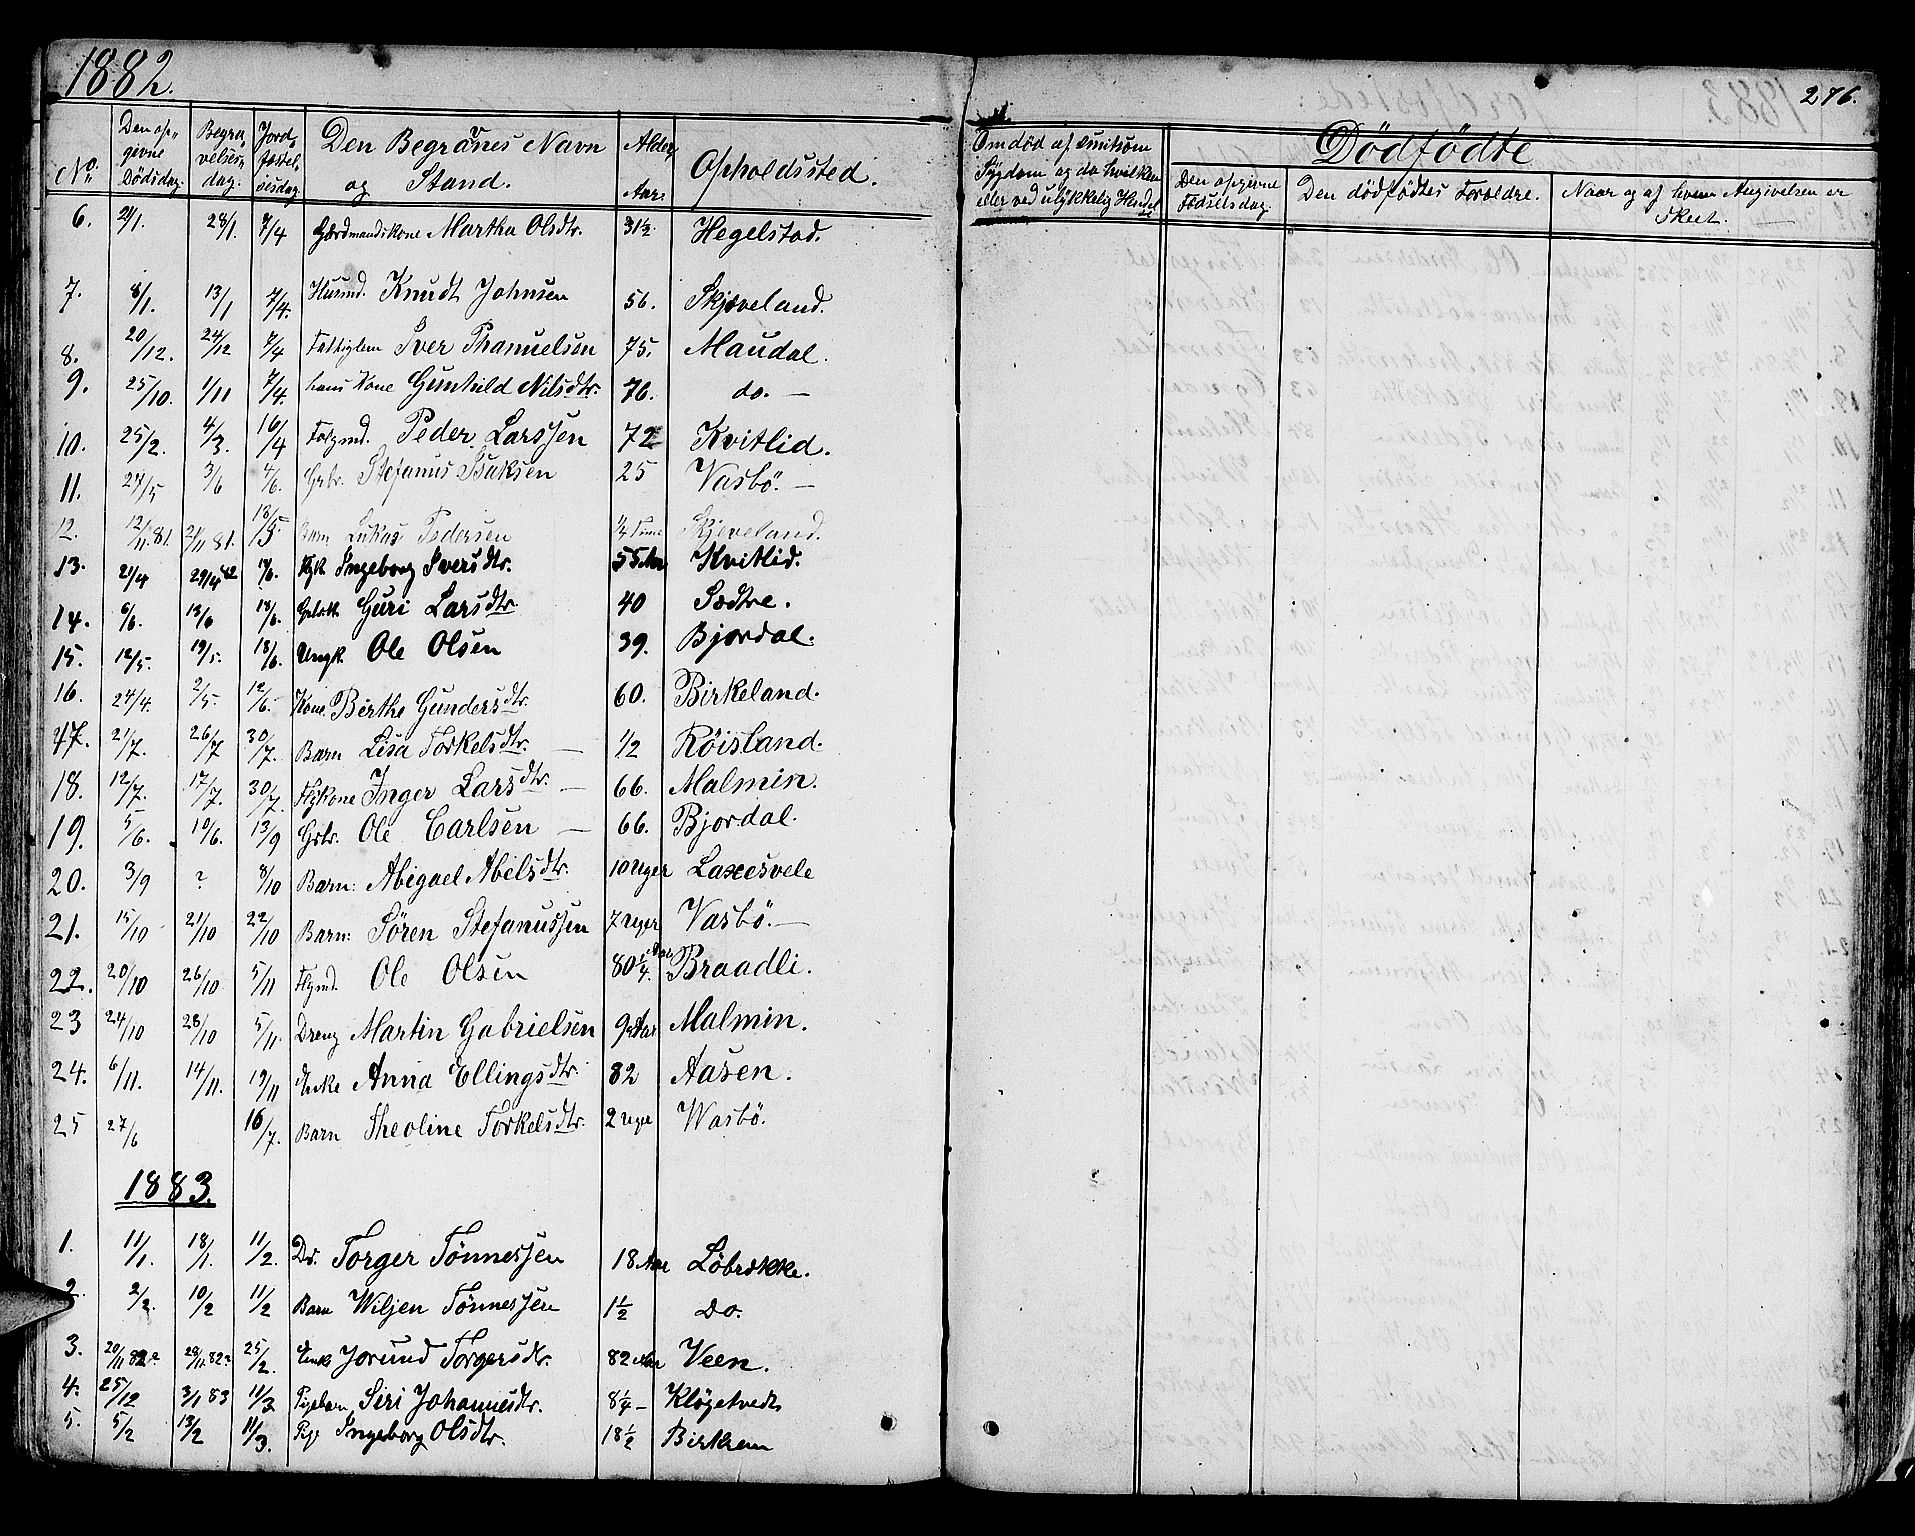 1882.
No. Den op- givne Dödsdag. Begra- velses- dag. Jord- fæstel- sesdag. Den Begravnes Navn og Stand. Alder Aar. Opholdssted.
6. 28/1. 7/4 Gaardmandskone Martha Olsdtr. 31½ Hegelstad.
7. 8/1. 13/1 7/4. Husmd. Knudt Johnsen 56. Skjæveland.
8. 20/12. 24/12 7/4 Fattiglem Iver Thanuelsen 75. Maudal.
9. 25/10. 1/11 7/4. hans Kone Gunhild Nilsdtr. 76. do. —
10. 25/2. 4/3. 16/4 Folgmd. Peder Larssen 72 Kvitlid.
11. 24/5 3/6 4/6. Grbr. Stefanus Isaksen 25 Vasbö. —
12. 12/11.81. 21/11 81. Barn Lukas Pedersen ¼ Time Skjeveland.
13. 21/4 29/4 82 Ingeborg Iversdtr. 55 Aar Kvitlid.
14. 6/6. 13/6 18/6. Guri Larsdtr. 40 Sædtre.
15. 12/5. 19/5. 18/6. Ungk. Ole Olsen 39. Bjordal.
16. 24/4. 2/5. 12/6. Kone Birthe Gundersdtr. 60. Birkeland.
17. 21/7. 26/7 30/7. Barn Lisa Torkelsdtr. — ½ Röisland.
18. 12/7. 17/7. 30/7. Flgkone Inger Larsdtr. — 66. Malmin.
19. 5/6. 10/6. 13/9 Grbr. Ole Carlsen — 66. Bjordal.
20. 3/9 ? 8/10 Barn: Abigael Abelsdtr. 10 Uger Laxesvele
21. 15/10 21/10 22/10 Barn: Sören Stefanussen 7 Uger Vasbö. —
22. 20/10 26/10 5/11 Flgmd. Ole Olsen 80¼ Aar Braadli.
23 24/10 28/10 5/11. Dreng Martin Gabrielsen 9 Aar Malmin.
24. 6/11. 14/11. 19/11 Enke Anna Ellingsdtr. 82 Aasen.
25 27/6 16/7. Barn Theoline Torkelsdtr. 2 Uger Wasbö.
1883.
1. 11/1. 18/1. 11/2. Dr. Torger Tönnessen 18 Aar Löbrække.
2. 2/2. 10/2 11/2 Barn Wiljen Tönnessen 1½ Do.
3. 20/11 82? 28/11. 82? 25/2. Enke Jorund Torgersdtr. 82 Aar Veen.
4. 25/12 3/1 83 11/3 Pigebarn Siri Johannesdtr. 8¼ – Klögetvedt
5. 5/2 13/2 11/3. Pige Ingeborg Olsdtr. 18½ Birkrem
276.
Om död af smitsom Sygdom og da hvilken eller ved ulykkelig Hendelse
Dödfödte
Den opgivne Födselsdag. Den dödfödtes Forældre. Naar og af hvem Angivelsen er skeet. —